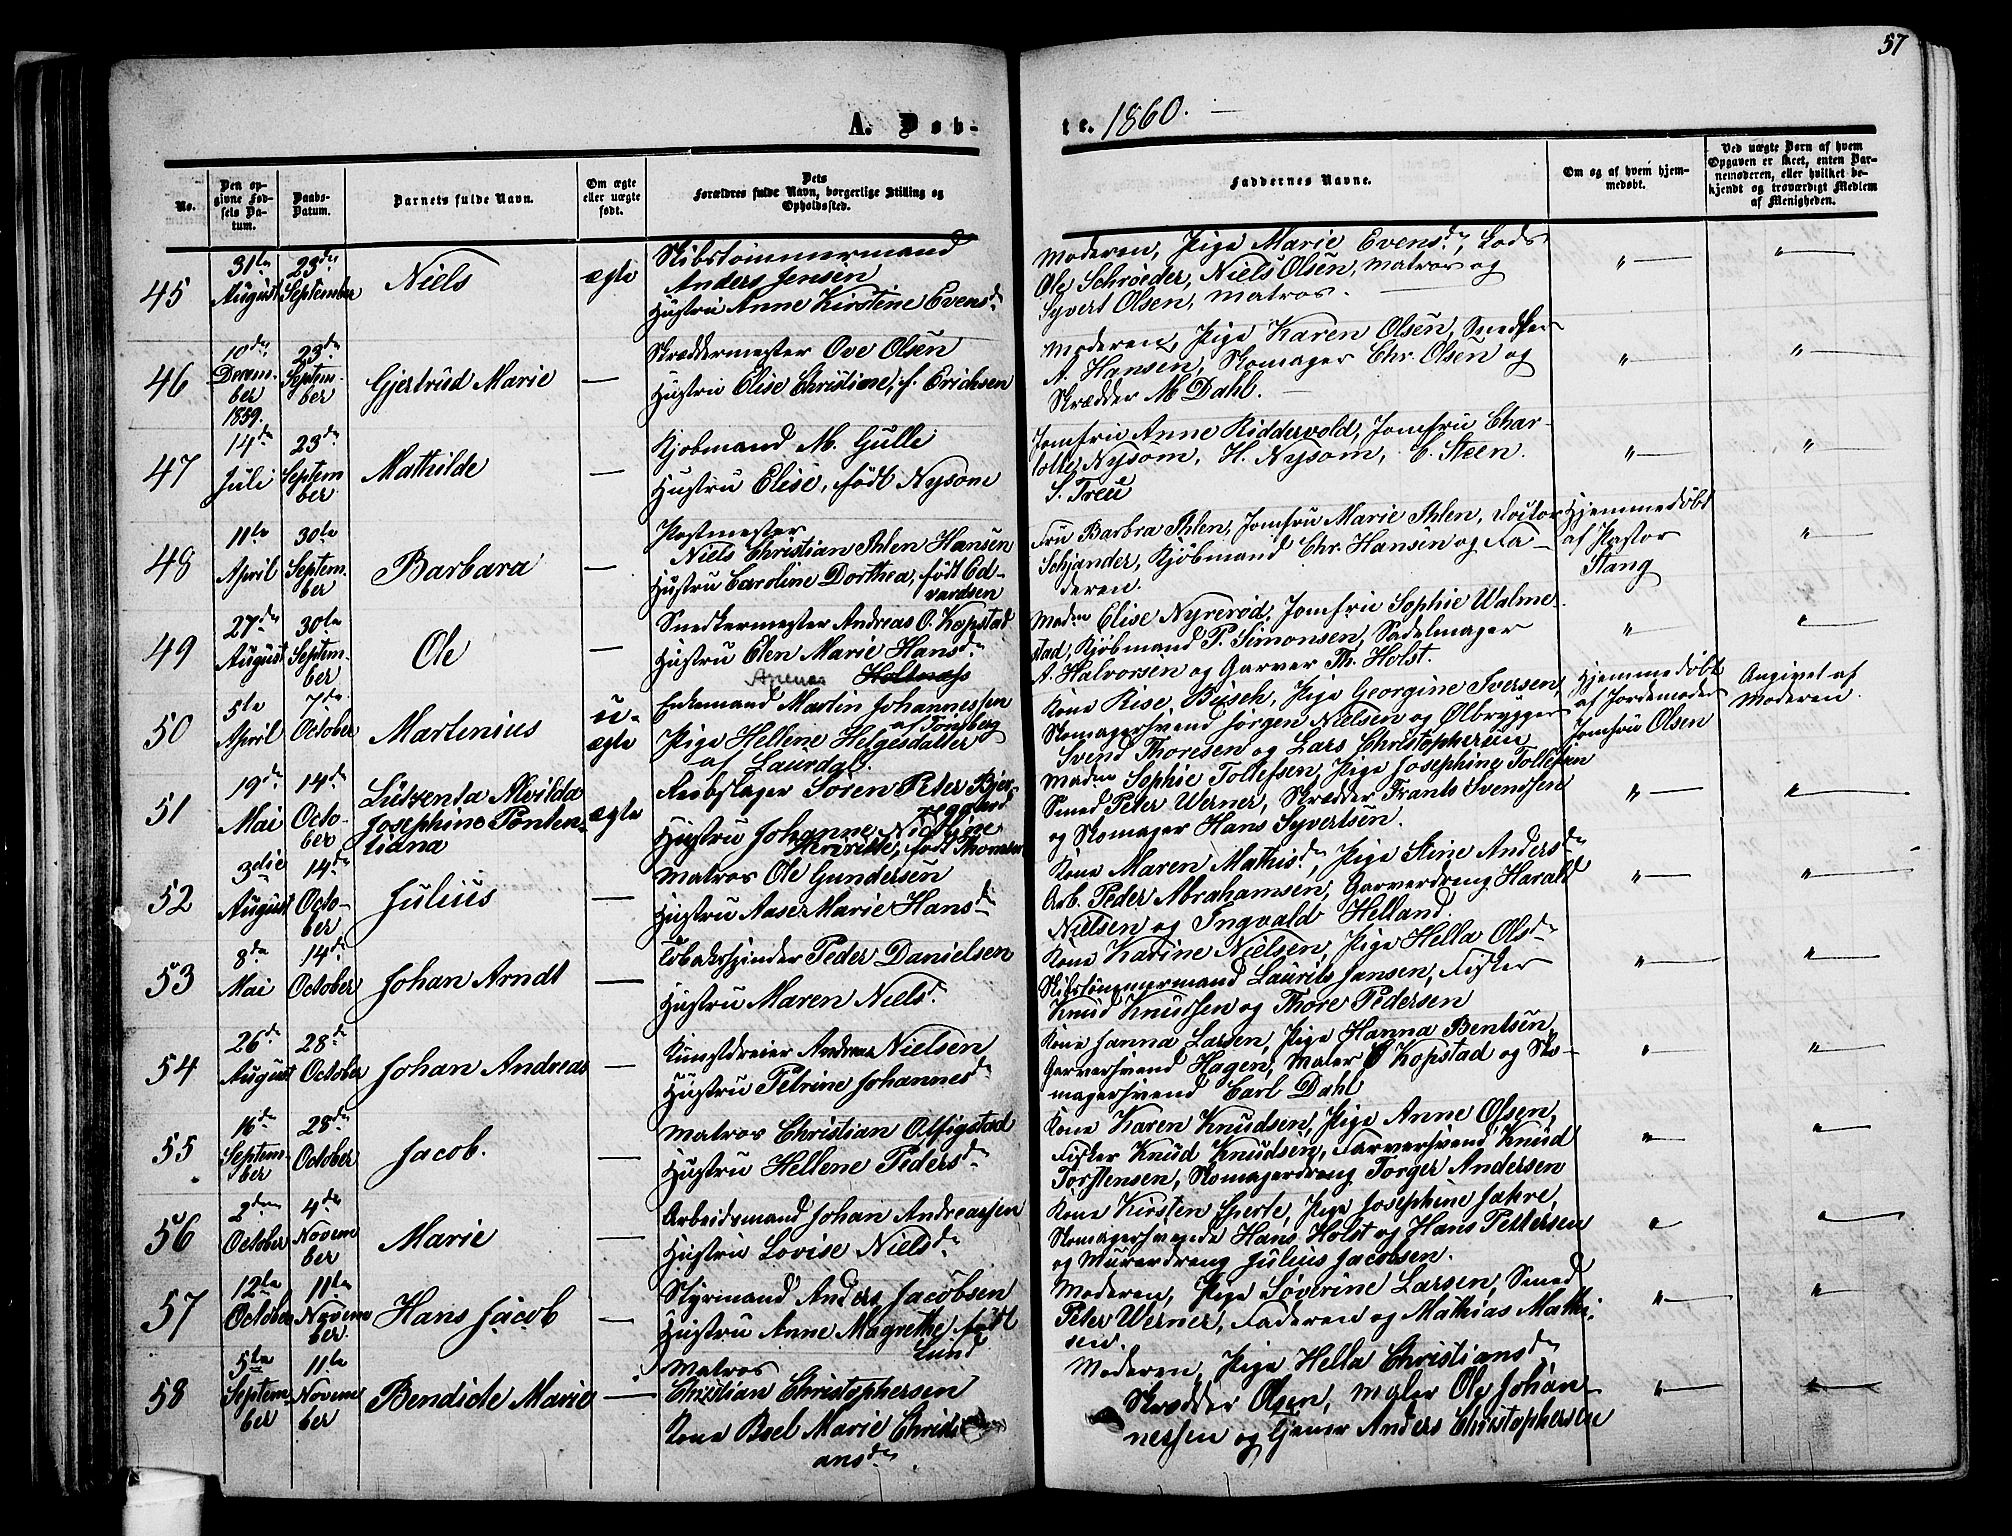 57
A. Døb-
te. 1860.
No.
Den op-
givne Fød-
sels Da-
tum.
Daabs-
Datum.
Barnets fulde Navn.
Om ægte
eller uægte
født.
Dets
Forældres fulde Navn, borgerlige Stilling og
Opholdssted.
Faddernes Navne.
Om og af hvem hjem-
medøbt.
Ved uægte Børn af hvem
Opgaven er skeet, enten Bar-
nemoderen, eller hvilket be-
kjendt og troværdigt Medlem
af Menigheden.
45
31te
August
23de
September
Niels
ægte
Skibstømmermand
Anders Jensen
Hustru Anne Kirstine Evensd.
Moderen, Pige Marie Evensd., Lods
Ole Schrøeder, Niels Olsen, Matros og
Syvert Olsen, Matros.
"
"
46
10de
Decem-
ber
1859.
23de
Septem-
ber
Gjertrud Marie
—
Skræddermester Ove Olsen
Hustru Elise Christine, f. Erichsen
Moderen, Pige Karen Olsen, Snedker
A. Hansen, Skomager Chr. Olsen og
Skrædder M Dahl.
"
"
47
14de
Juli
23de
Septem-
ber
Mathilde
—
Kjøbmand M. Gulli
Hustru Elise, født Nysom
Jomfru Anne Riddervold, Jomfru Char-
lotte Nysom, H. Nysom, C. Steen
S. Treu
"
"
48
11te
April
30te
Septem-
ber
Barbara
—
Postmester
Niels Christian Ihlen Hansen
Hustru Caroline Dorthea, født Ed-
vardsen
Fru Barbra Ihlen, Jomfru Marie Ihlen, Doctor
Schjander, Kjøbmand Chr. Hansen og Fa-
deren.
Hjemmedøbt
af Pastor
Stang
"
49
27de
August
30te
Septem-
ber
Ole
—
Snedkermester Andreas O. Kopstad
Hustru Elen Marie Hansd.
Holtnæss
Madm Elise Nyrerød, Jomfru Sophie Walme-
stad, Kjøbmand P. Simonsen, Sadelmager
A. Halvorsen og Garver Th. Holst.
"
"
50
5te
April
7de
October
Martinius
u-
ægte
Enkemand Martin Johannessen
af Tønsberg
Pige Hellene Helgesdatter
af Laurdal.
Kone Rise, Beisch, Pige Georgine Iversen,
Skomagersvend Jørgen Nielsen og Ølbrygger
Svend Thoresen og Lars Christophersen
Hjemmedøbt
af Jordemoder
Jomfru Olsen
Angivet af
Moderen.
51
19de
Mai
14de
Octo-
ber
Lutzenta Alvilda
Josephine Ponten-
tiana
ægte
Rebslager Soren Peter Bjer-
regaard
Hustru Johanne Nicoline
født Thomsen
Madm Sophie Tollefsen, Pige Josephine Tollefsen
Smed Peter Werner, Skrædder Frants Svendsen
og Skomager Hans Syvertsen.
"
"
52
3die
August
14de
Octo-
ber
Julius
—
Matros Ole Gundersen
Hustru Aase Marie Hansd.
Kone Maren Mathisd., Pige Stine Andersd.
Arb. Peder Abrahamsen, Garverdreng Harald
Nielsen og Ingvald Helland.
"
"
53
8de
Mai
14de
October
Johan Arndt
—
Tobaksspinder Peder Danielsen
Hustru Maren Nielsd.
Kone Karine Nielsen, Pige Hella Olsd.
Skibstømmermand Laurits Jansen, Fisker
Knud Knudsen og Thore Pedersen
"
"
54
26de
August
28de
October
Johan Andreas
—
Kunstdreier Andreas Nielsen
Hustru Petrine Johannesd.
Kone Janna Larsen, Pige Hanna Bentsen,
Garversvend Hagen, Maler Kopstad og Sko-
magersvend Carl Dahl
"
"
55
16de
Septem-
ber
28de
October
Jacob.
—
Matros Christian Olfigstad
Hustru Hellene Pedersd.
Kone Karen Knudsen, Pige Anne Olsen,
Fisker Knud Knudsen, Farversvend Knud
Torstensen, Skomagerdreng Torger Andersen
"
"
56
2den
October
4de
Novem
ber
Marie
—
Arbeidsmand Johan Andreassen
Hustru Lovise Nielsd.
Kone Kirsten Sperle, Pige Josephine Jahre,
Skomagersvende Hans Holst og Hans Pettersen
og Murerdreng Julius Jacobsen.
"
"
57
12te
October
11te
Novem
ber.
Hans Jacob
—
Styrmand Anders Jacobsen
Hustru Anne Magrethe, født
Lund
Moderen, Pige Søverine Larsen, Smed
Peter Werner, Faderen og Mathias Mathi-
sen.
"
"
58
5te
Septem-
ber
11te
Novem
ber
Bendicte Marie
—
Matros
Christian Christophersen
Kone Boel Marie Christi
ansd.
Moderen, Pige Hella Christiansd.
Skrædder Olsen, Maler Ole Johan-
nessen og Anders Christophersen
"
"